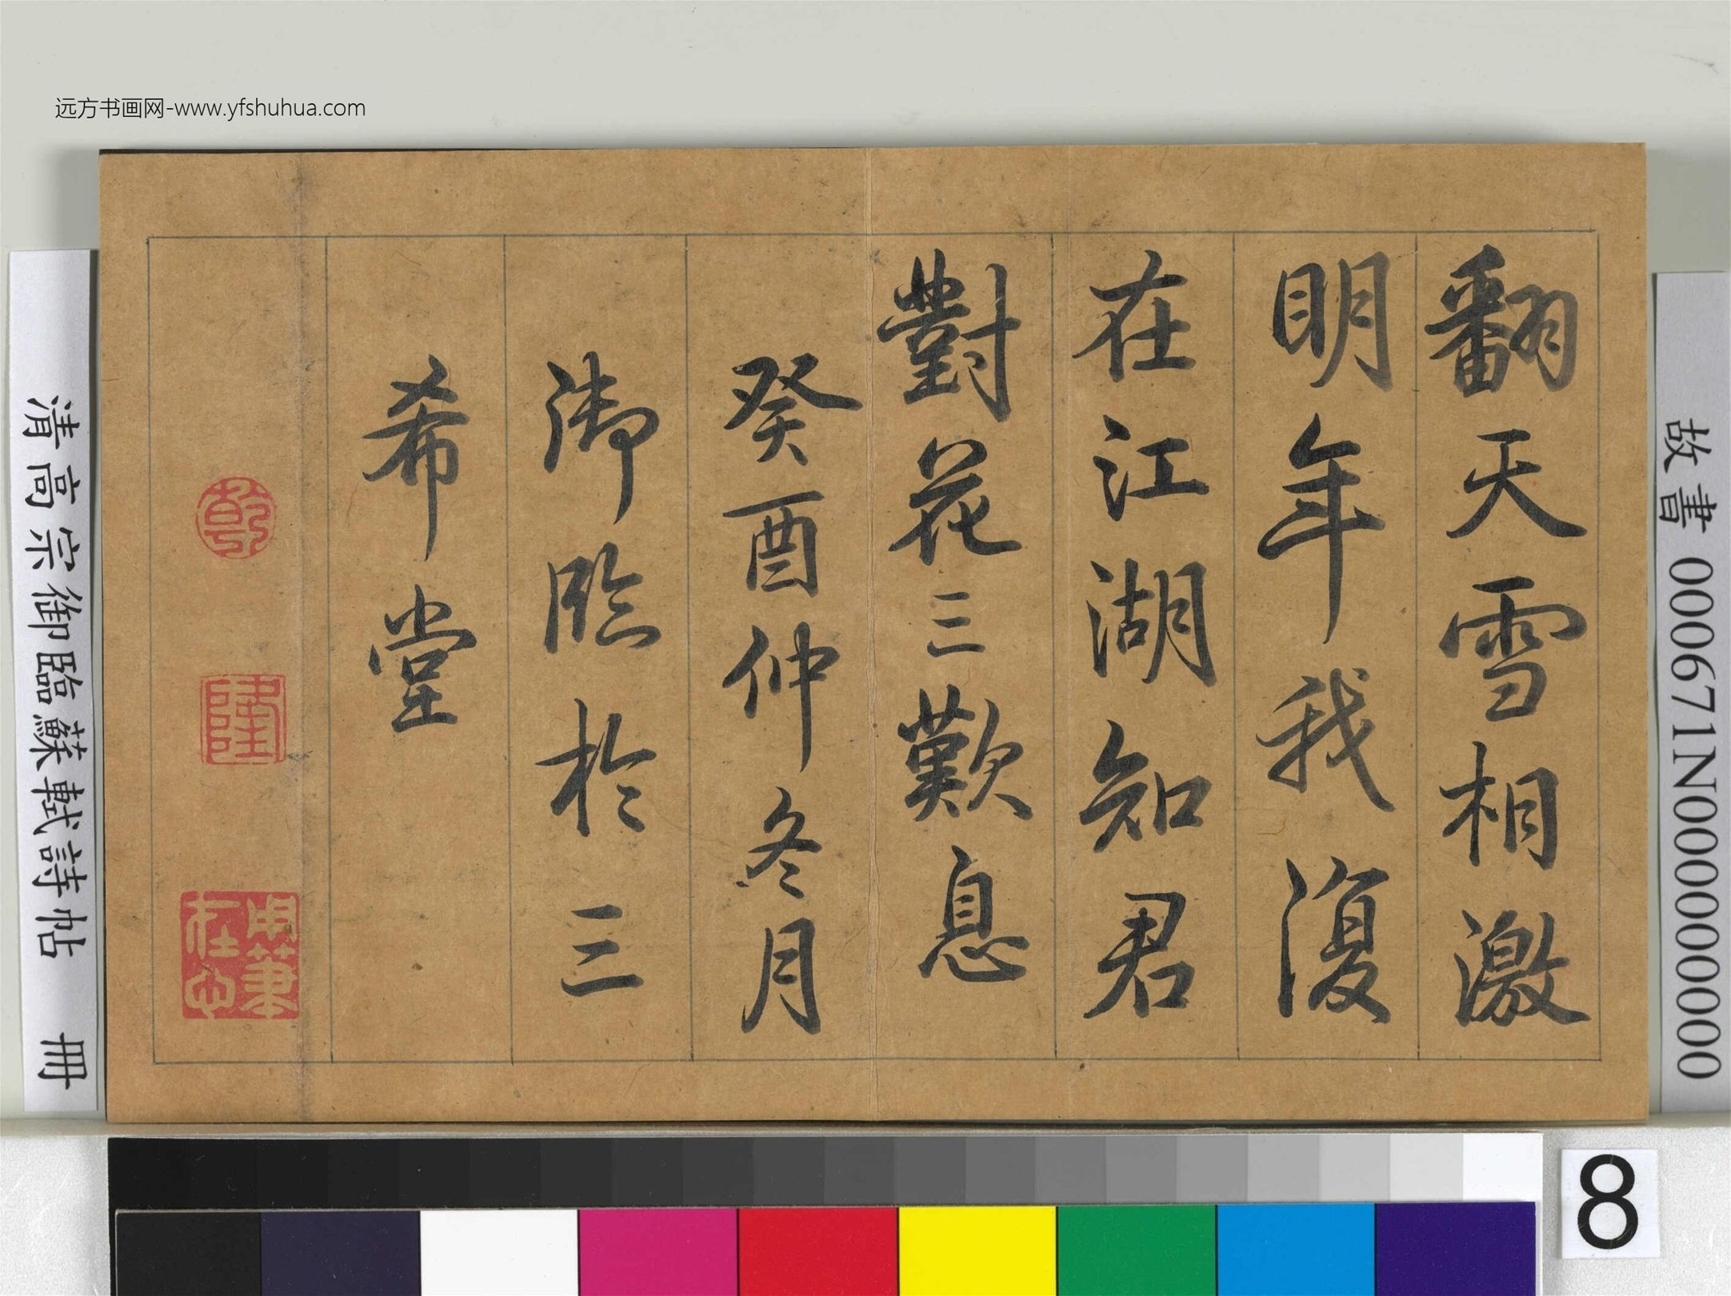 远方书画网-www.yfshuhua.com
故書 000671N000000000
翻天雪相激
明年我復
在江湖知君
對花三歎息
癸酉仲冬月
御臨於三
希堂
乾
隆
用筆在心
清高宗御臨蘇軾詩帖 冊
8